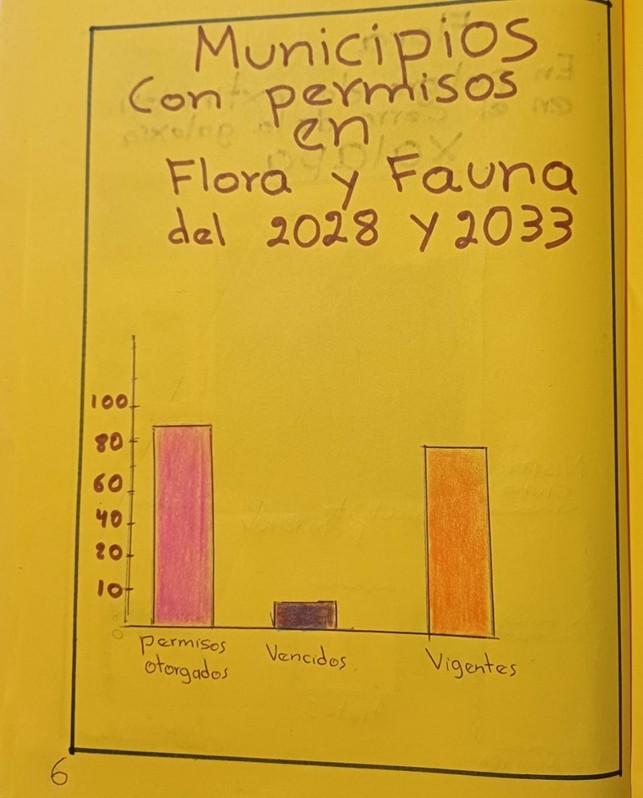 Municipios
Con permisos
en
Flora y Fauna
del 2028 Y 2033
100
80
60
40
20
10
0
permisos
otorgados
Vencidos
Vigentes
6